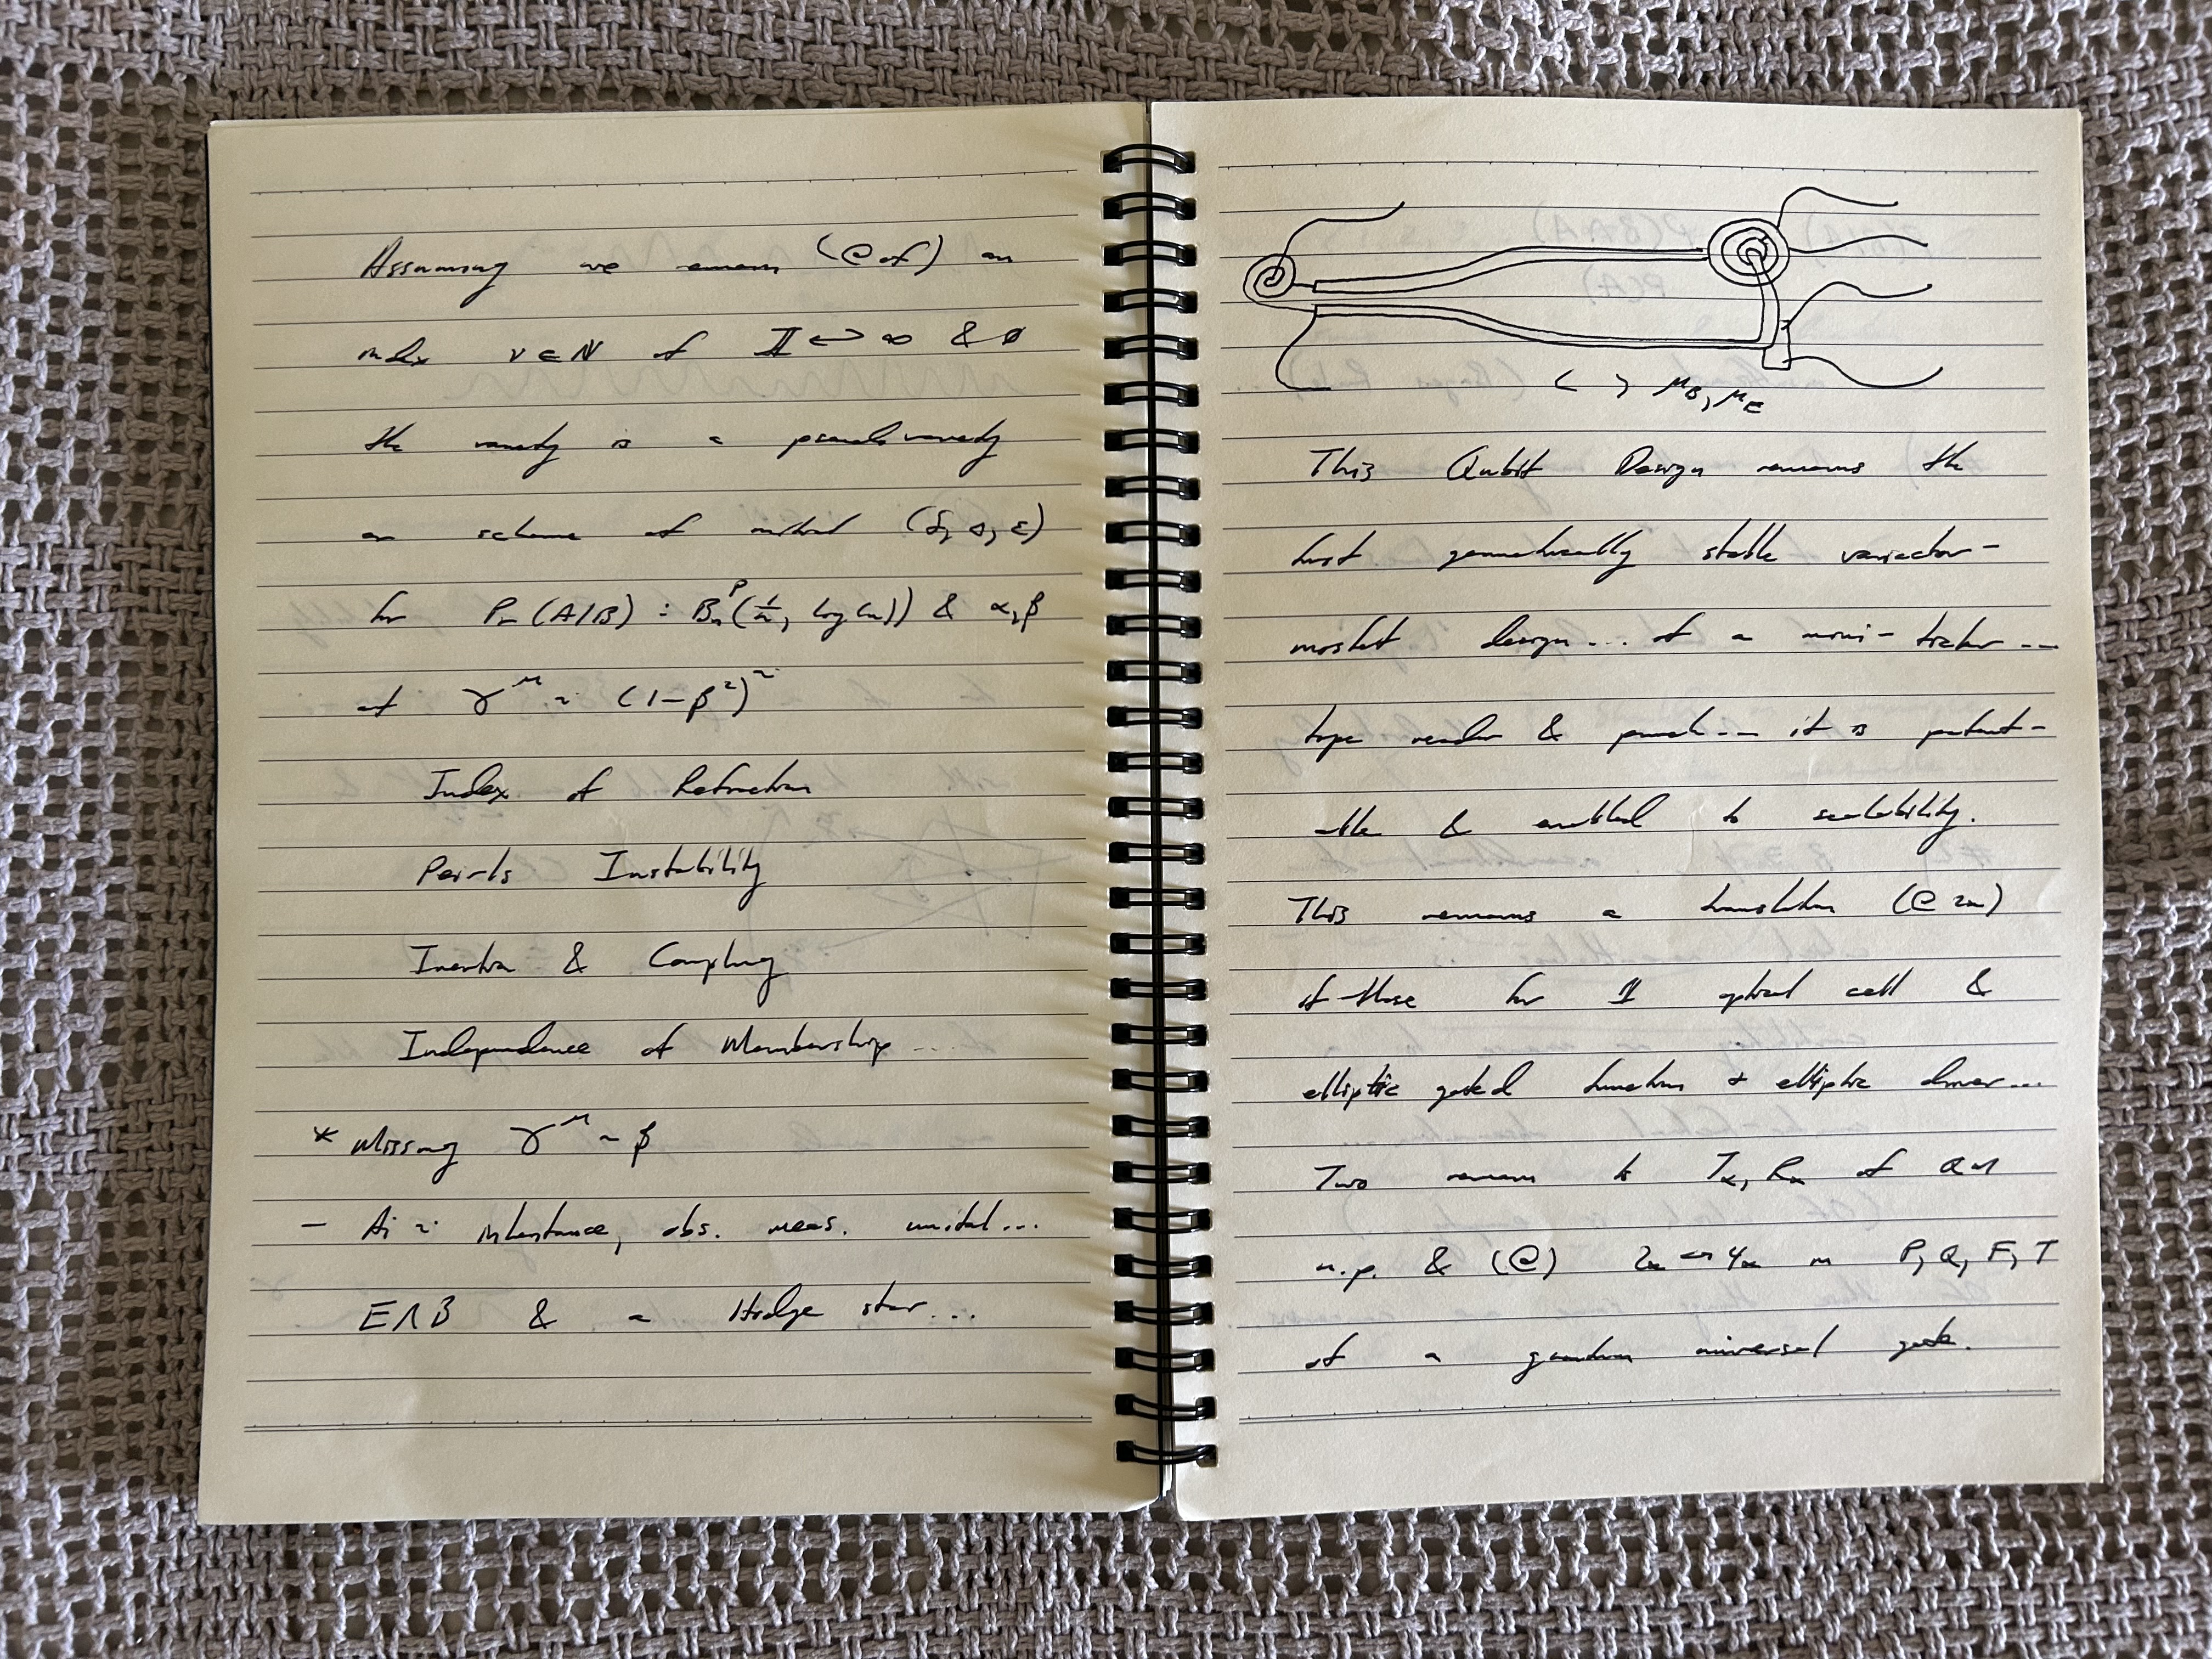 Assuming we remain (@ of) an
index ν ∈ N of II ↔ ∞ & ø
the variety is a pseudovariety
an scheme of (δ, σ, ε)
for Pr (A/B) : Bn^p (1/n, log(n)) & α, β
at γ^μ ~ (1-β²)^~
Index of Refraction
Peirls Instability
Inertia & Coupling
Independence of Membership ...
* Missing γ^μ ~ β
- Ai ~ inheritance, obs. meas. unital...
E∧B & a Hodge star...
< > μB, μE
This Qubit Design remains the
first geometrically stable varactor-
mosfet design... of a mini-ticker ...
tape reader & punch... it is patent-
able & enabled to scalability.
This remains a translation (@ 2x)
of those for II optical cell &
elliptic gated function & elliptic driver...
Two remain to Tx, Rx of QM
n.p. & (@) 2x ↔ 4x in P, Q, F, T
of a quantum universal gate.